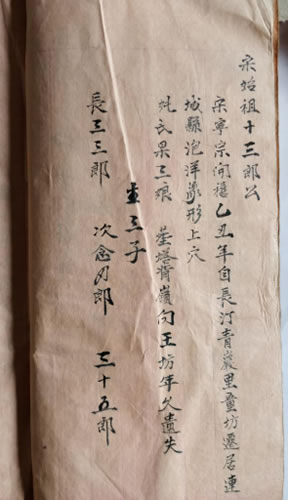 宋始祖十三郎公
宋寧宗開禧乙丑年自長汀青巖里童坊遷居連
城縣泡洋象形上穴
妣氏果三娘 塟塔背嶺向王坊年久遺失
三子
長三三郎 次念九郎 三十五郎